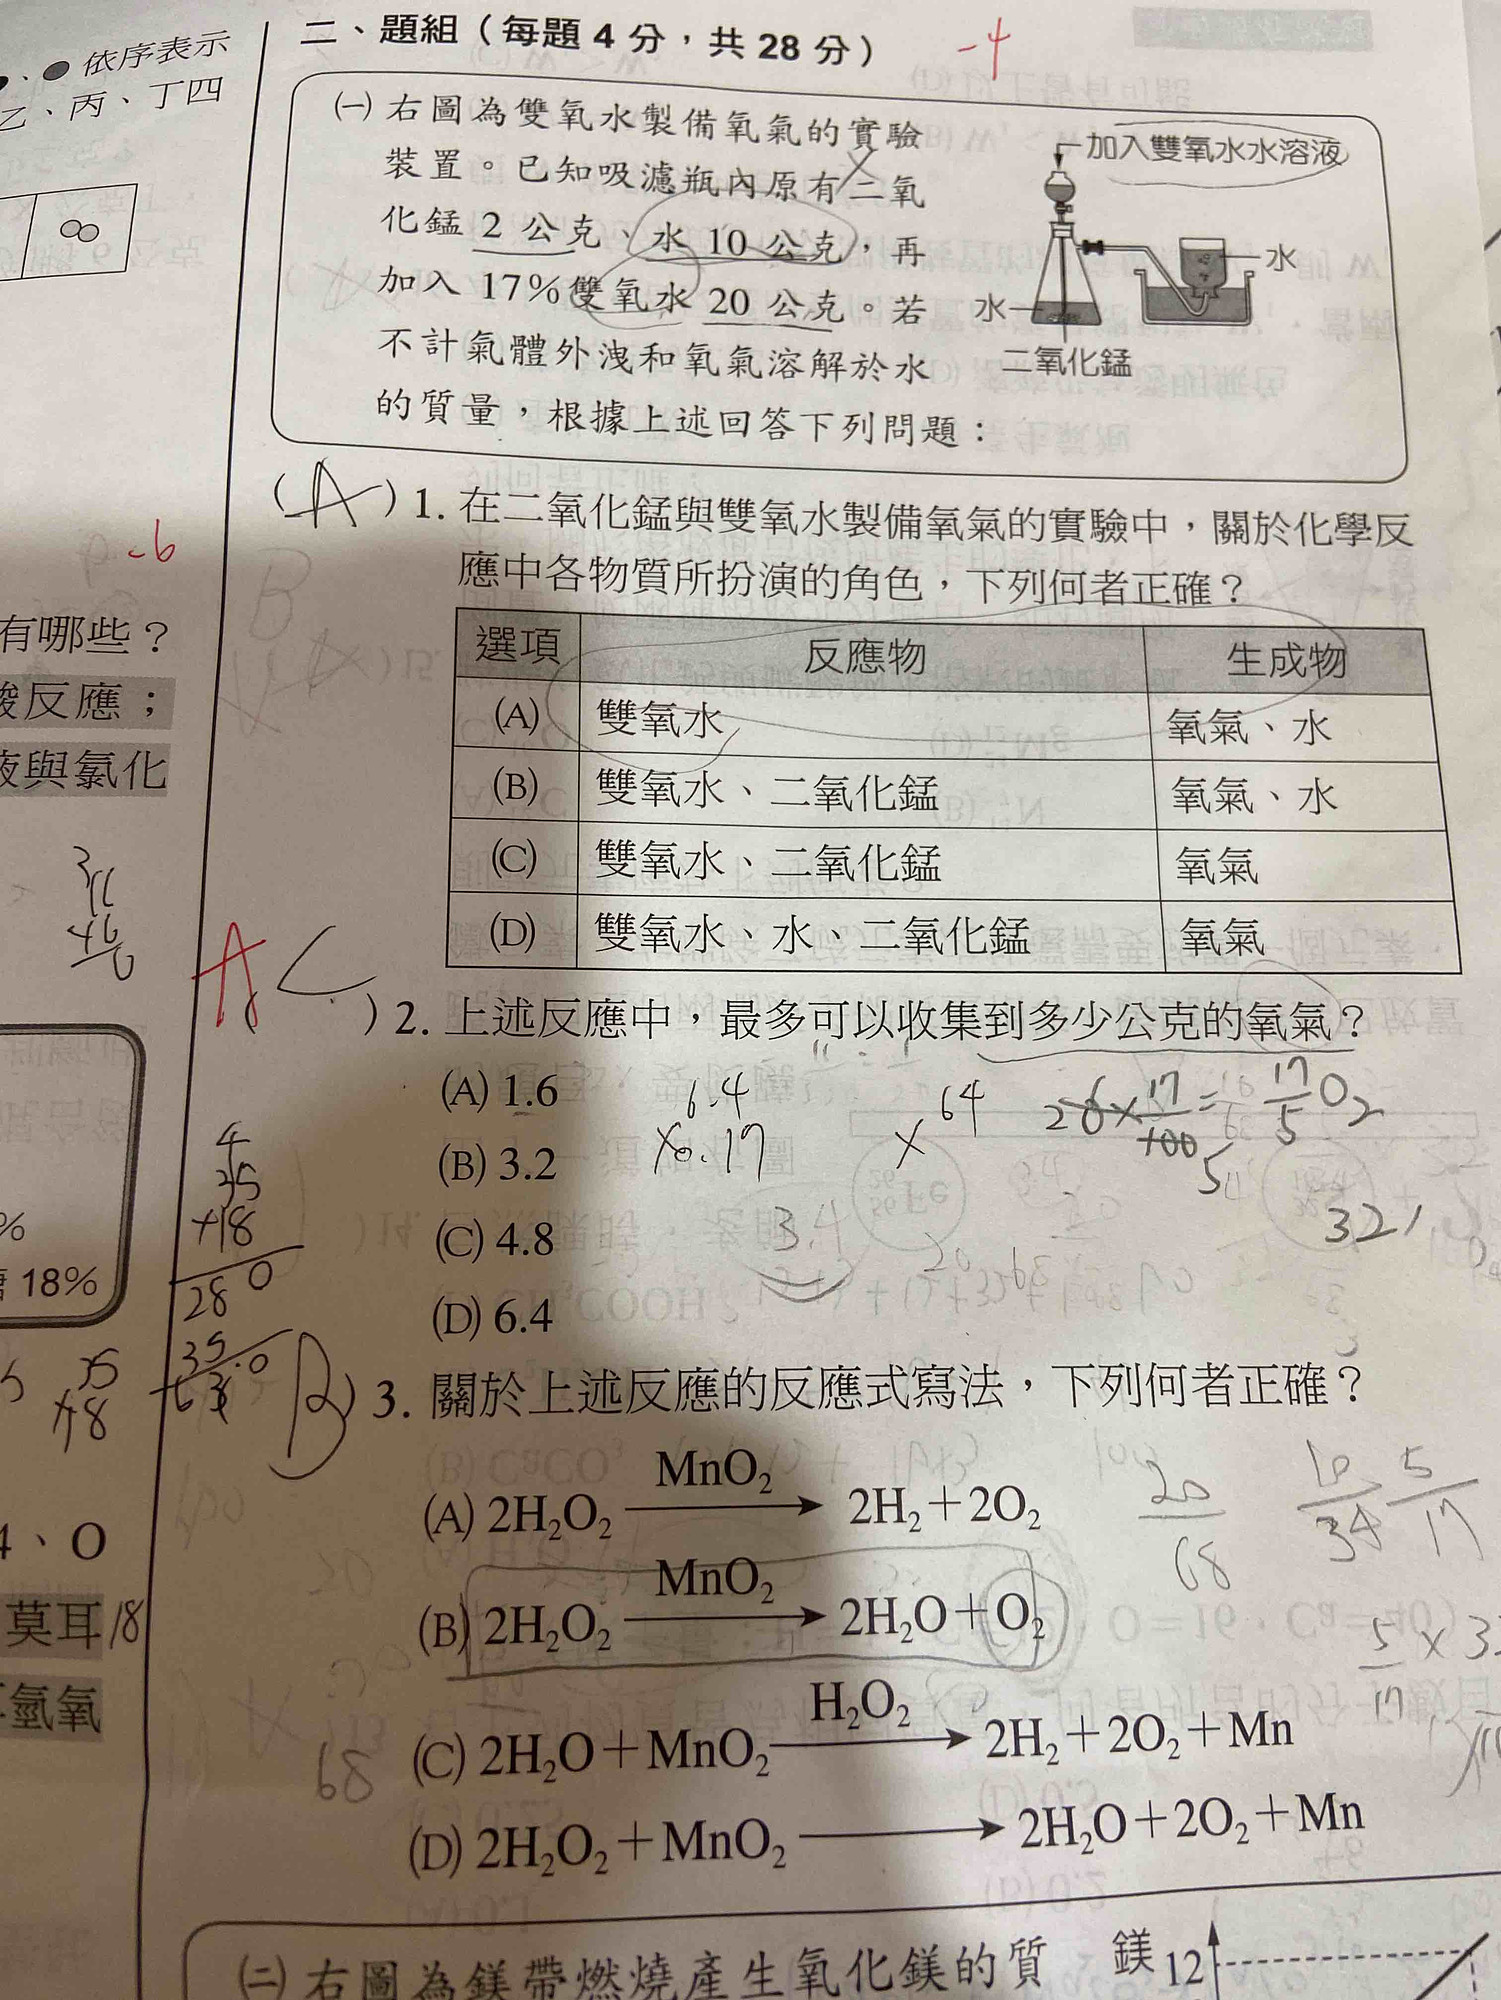 、● 依序表示
乙、丙、丁四
-6
有哪些？
酸反應；
液與氯化
%
18%
4、O
莫耳 18
氫氧
二、題組（每題 4 分，共 28 分）
-4
㈠ 右圖為雙氧水製備氧氣的實驗
裝置。已知吸濾瓶內原有二氧
化錳 2 公克、水 10 公克，再
加入 17% 雙氧水 20 公克。若
不計氣體外洩和氧氣溶解於水
的質量，根據上述回答下列問題：
加入雙氧水水溶液
水
水
二氧化錳
(A) 1. 在二氧化錳與雙氧水製備氧氣的實驗中，關於化學反
應中各物質所扮演的角色，下列何者正確？
選項 反應物 生成物
(A) 雙氧水 氧氣、水
(B) 雙氧水、二氧化錳 氧氣、水
(C) 雙氧水、二氧化錳 氧氣
(D) 雙氧水、水、二氧化錳 氧氣
A C ) 2. 上述反應中，最多可以收集到多少公克的氧氣？
(A) 1.6
(B) 3.2
(C) 4.8
(D) 6.4
6.4
×0.17
×64
17/5 O2
3.4
4
35
+18
280
B ) 3. 關於上述反應的反應式寫法，下列何者正確？
MnO₂
(A) 2H₂O₂ → 2H₂＋2O₂
MnO₂
(B) 2H₂O₂ → 2H₂O＋O₂
H₂O₂
(C) 2H₂O＋MnO₂ → 2H₂＋2O₂＋Mn
(D) 2H₂O₂＋MnO₂ → 2H₂O＋2O₂＋Mn
20/68
10/34
5/17
68
㈡ 右圖為鎂帶燃燒產生氧化鎂的質
鎂 12